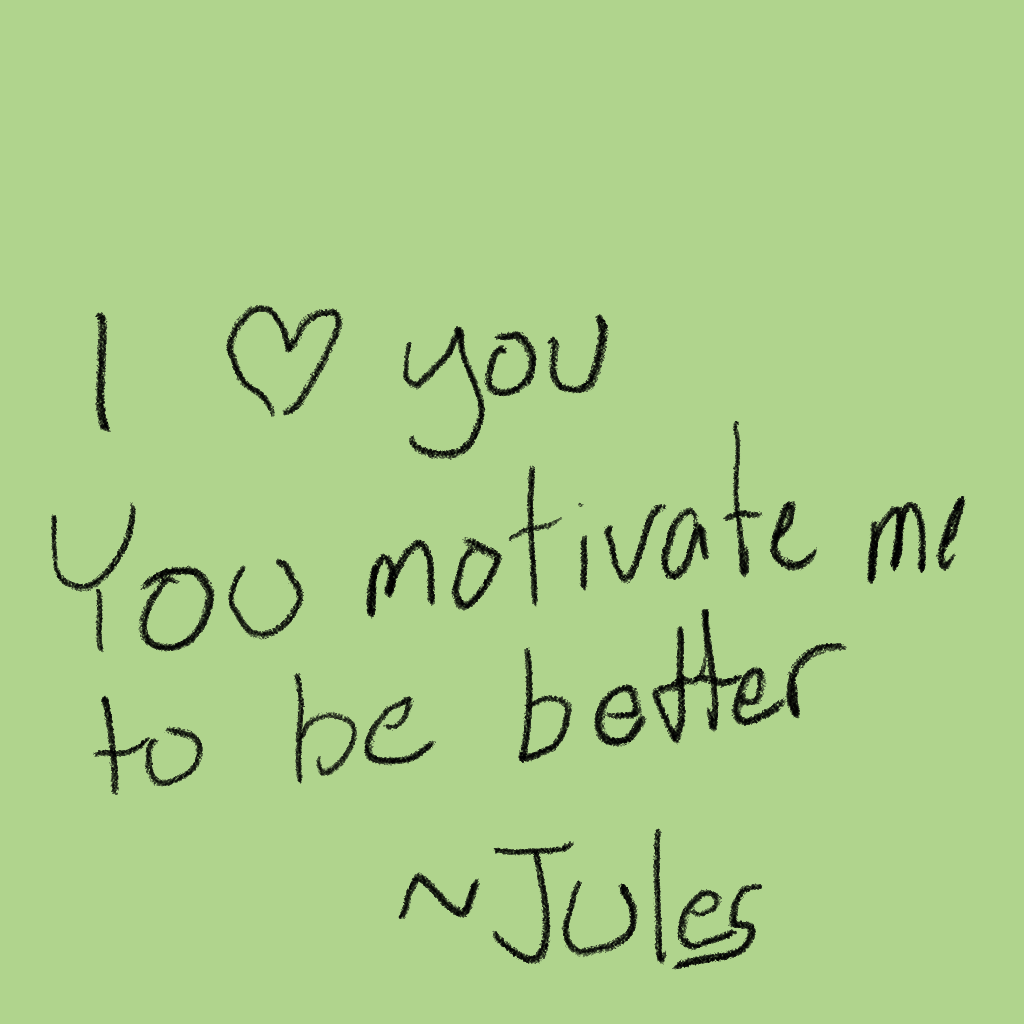 I ♡ you
You motivate me
to be better
~Jules